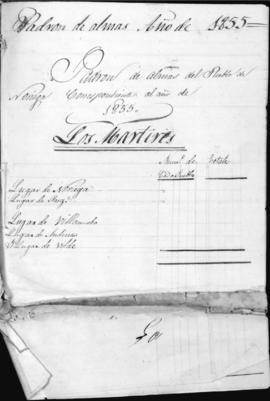 Padron de almas Año de 1855=
Padron de almas del Pueblo de
Noriega Correspondiente al año de
1855.
Los Martires
Num.º de Totale
Lugar de Noriega
Lugar de
Lugar de Villanueba
Lugar de Andinas
Lugar de Volde